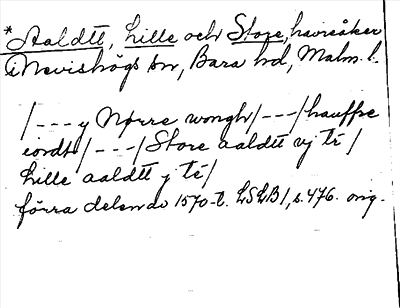 *Aaldtt, Lille och Store, havreåker
i Nevishögs sn, Bara hd, Malm. l.
/--- y Nørre wongh/---/hauffre
iordt/---/Store aaldtt vj té/
Lille aaldtt j té/
förra delen av 1570-t. LSLB1, s. 476. orig.